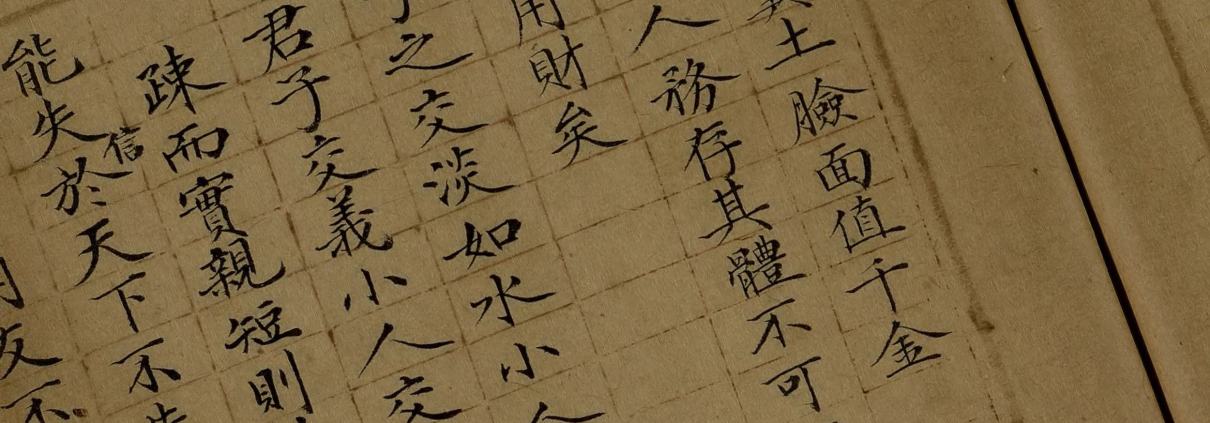 土臉面值千金
人務存其體不可
用財矣
之交淡如水小人
君子交義小人交
疎而實親短則
能失信於天下不失
友不